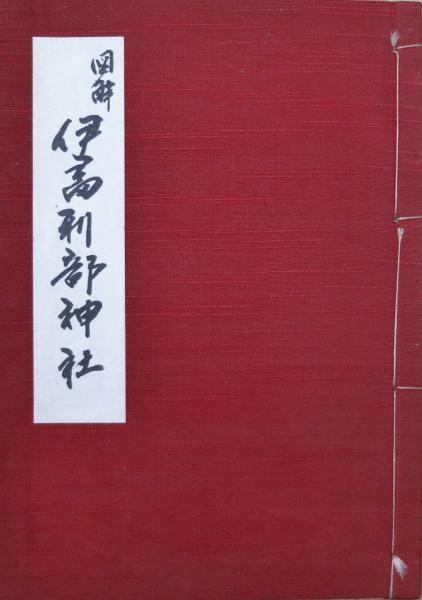 図解
伊富利部神社